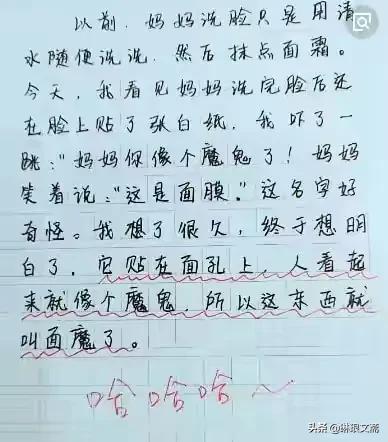 以前，妈妈洗脸只是用清
水随便洗洗，然后抹点面霜。
今天，我看见妈妈洗完脸后还
在脸上贴了张白纸，我吓了一
跳："妈妈你像个魔鬼了！妈妈
笑着说："这是面膜."这名字好
奇怪。我想了很久，终于想明
白了，它贴在面孔上，人看起
来就像个魔鬼，所以这东西就
叫面魔了。
哈哈哈～
头条@琳琅文斋